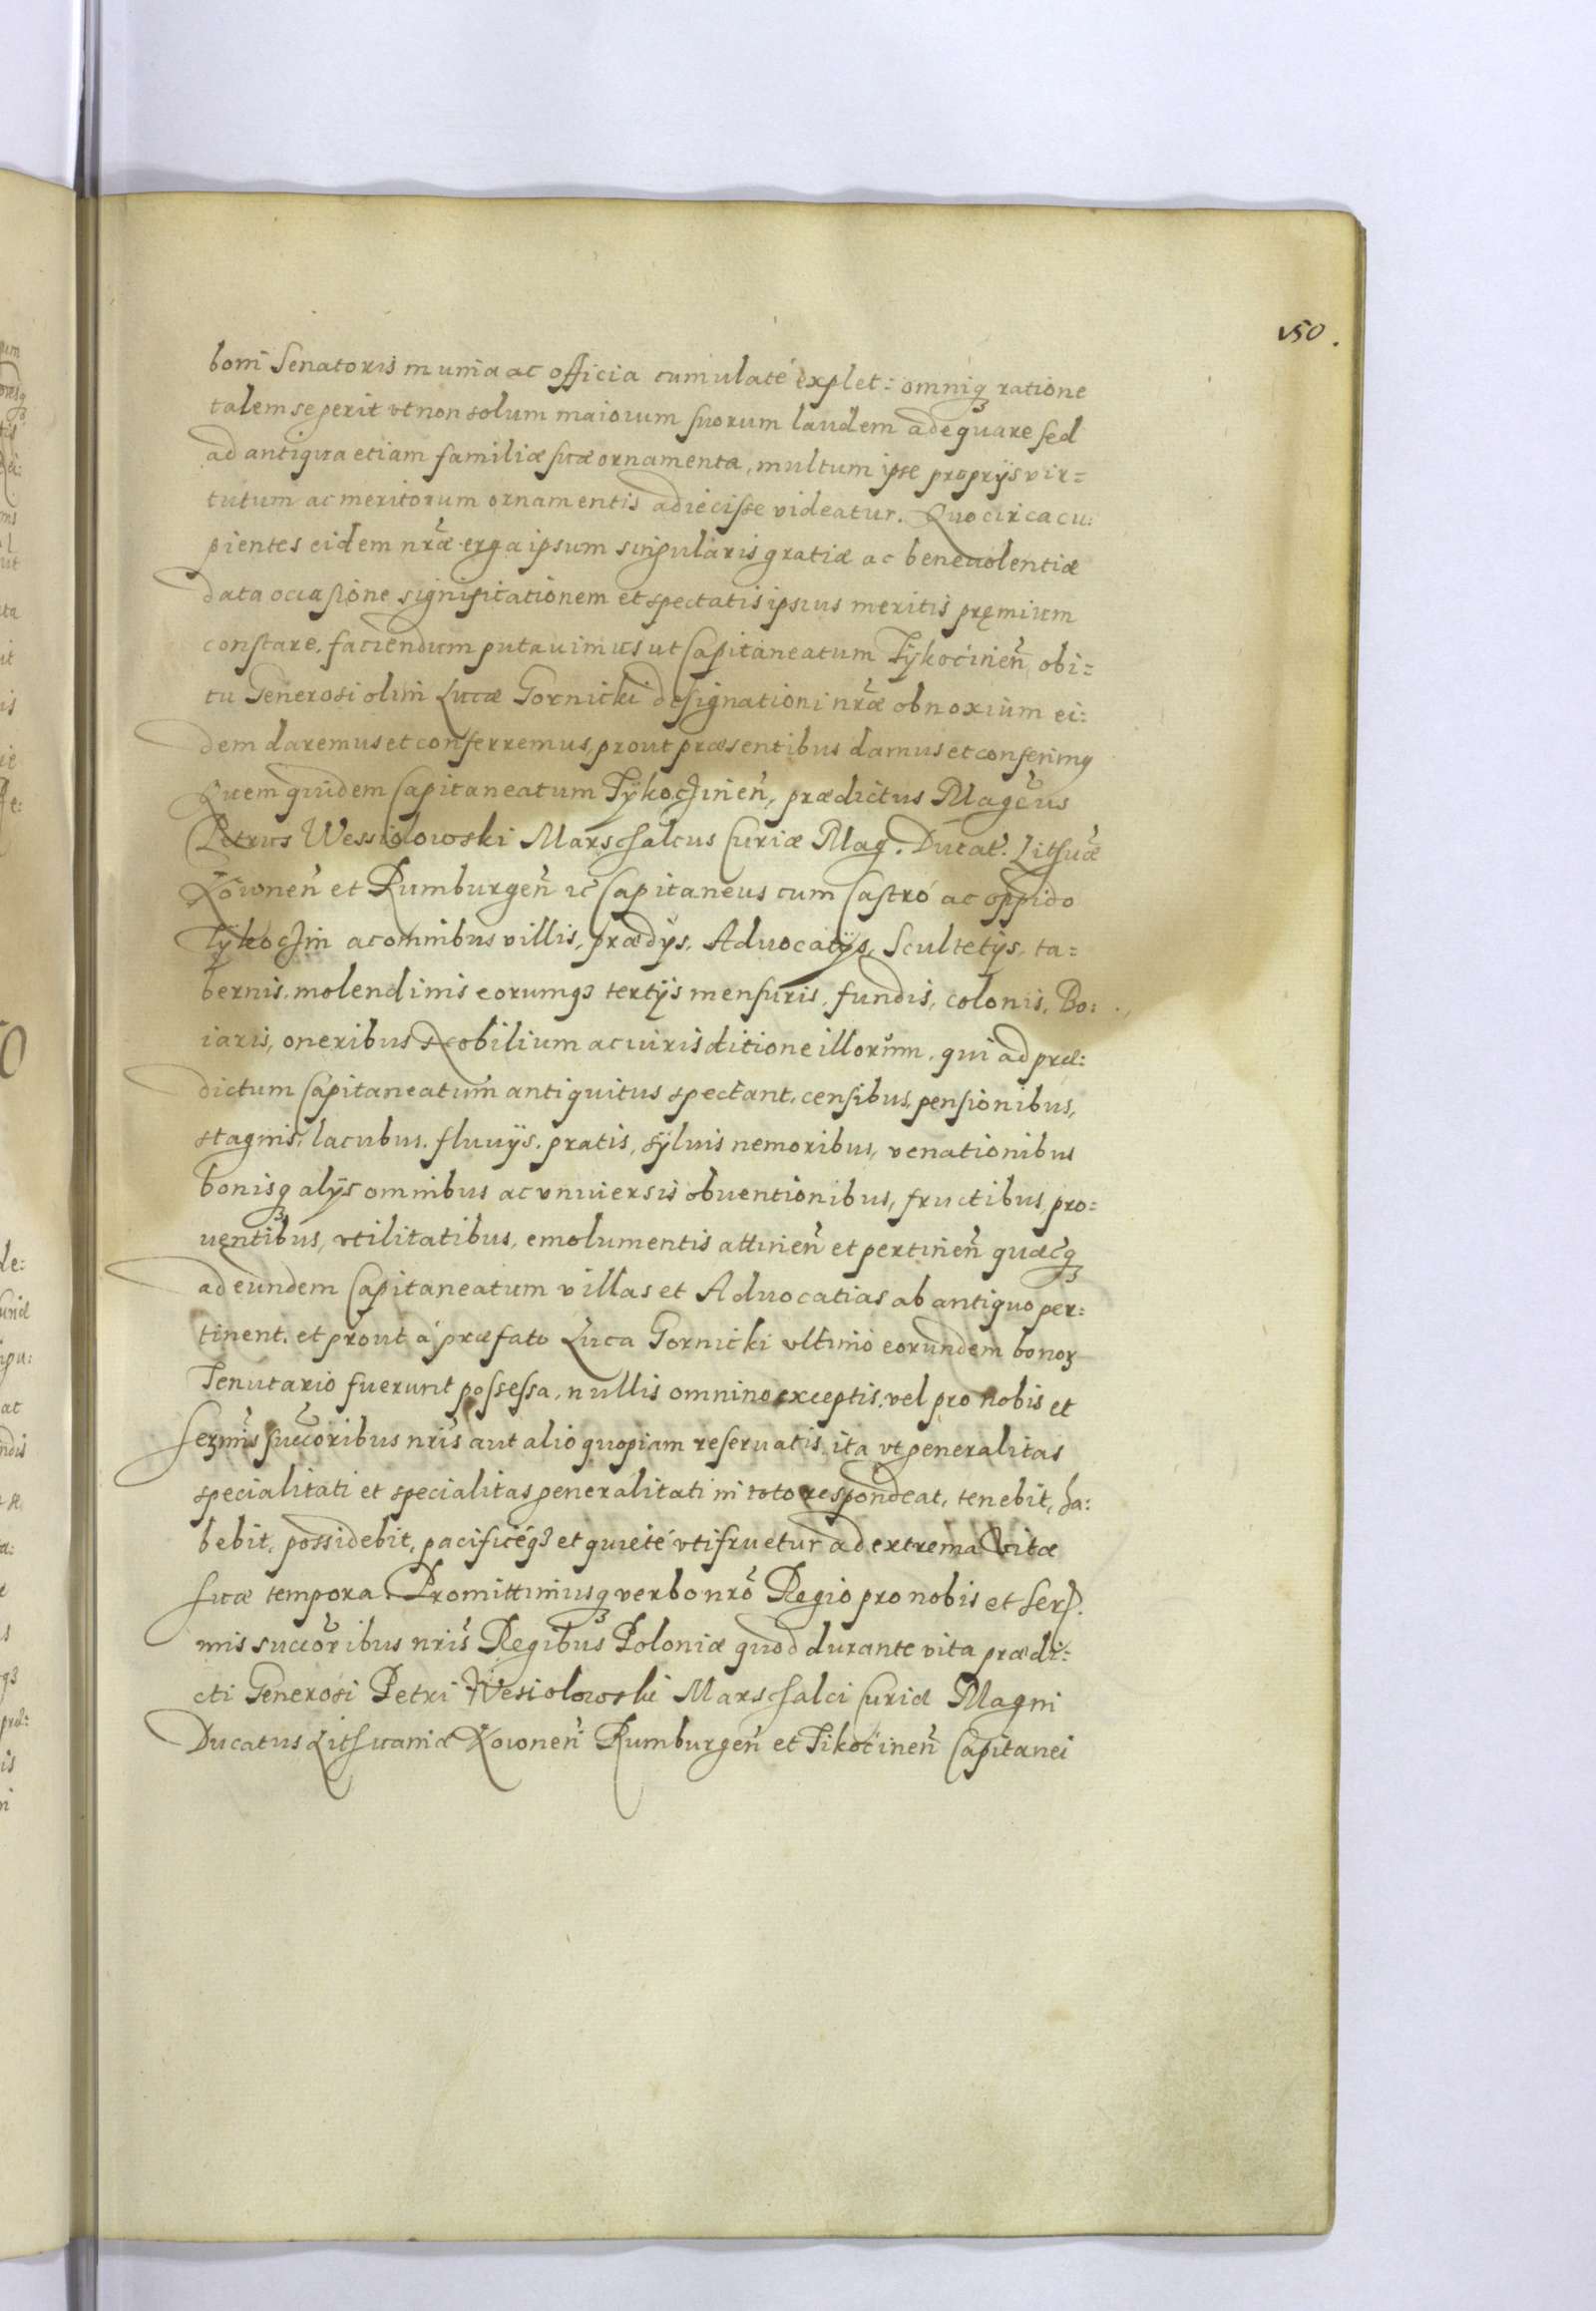 150.
boni Senatoris munia ac officia cumulaté explet: omniq3 ratione
talem se gerit vt non solum maiorum suorum laudem adequare sed
ad antiqua etiam familiæ suæ ornamenta, multum ipse proprijs vir=
tutum ac meritorum ornamentis adiecisse videatur. Quocirca cu:
pientes eidem nr̃æ erga ipsum singularis gratiæ ac beneuolentiæ
data occasione significationem et spectatis ipsius meritis pręmium
constare, faciendum putauimus ut Capitaneatum Tÿkocinen̄ obi=
tu Generosi olim Lucæ Gornicki designationi nr̃æ obnoxium ei:
dem daremus et conferremus, prout præsentibus damus et conferimq
Quem quidem Capitaneatum Tÿkoczinen̄, prædictus Magc̃us
Petrus Wessiolowski Marschalcus Curiæ Mag. Ducat. Lithuæ̃
Kownen̄ et Rumburgen̄ ic̃ Capitaneus cum Castro ac oppido
Tÿkoczin ac omnibus villis, prædijs, Aduocatijs, Scultetijs, ta=
bernis, molendinis eorumq3 tertijs mensuris, fundis, colonis, Bo:
iaris, oneribus Nobilium ac iurisditione illorum, qui ad præ:
dictum Capitaneatum antiquitus spectant, censibus, pensionibus,
stagnis, lacubus, fluuijs, pratis, sÿluis nemoribus, venationibus
bonisq3 alijs omnibus ac vniuersis obuentionibus, fructibus, pro=
uentibus, vtilitatibus, emolumentis attinen̄ et pertinen̄ quæc̃q3
ad eundem Capitaneatum villas et Aduocatias ab antiquo per=
tinent, et prout á præfato Luca Gornicki vltimo eorundem bonoꝝ
Tenutario fuerunt possessa, nullis omnino exceptis, vel pro nobis et
serm̃is succoribus nris̃ aut alio quopiam reseruatis, ita vt generalitas
specialitati et specialitas generalitati in toto respondeat, tenebit, ha:
bebit, possidebit, pacificéq3 et quieté vtifruetur ad extrema vitæ
suæ tempora. Promittimusq3 verbo nrõ Regio pro nobis et Ser.
mis succoribus nris̃ Regibus Poloniæ quod durante vita prædi:
cti Generosi Petri Wesiolowski Marschalci Curiæ Magni
Ducatus Lithuaniæ Kownen̄ Rumburgen̄ et Tikocinen̄ Capitanei